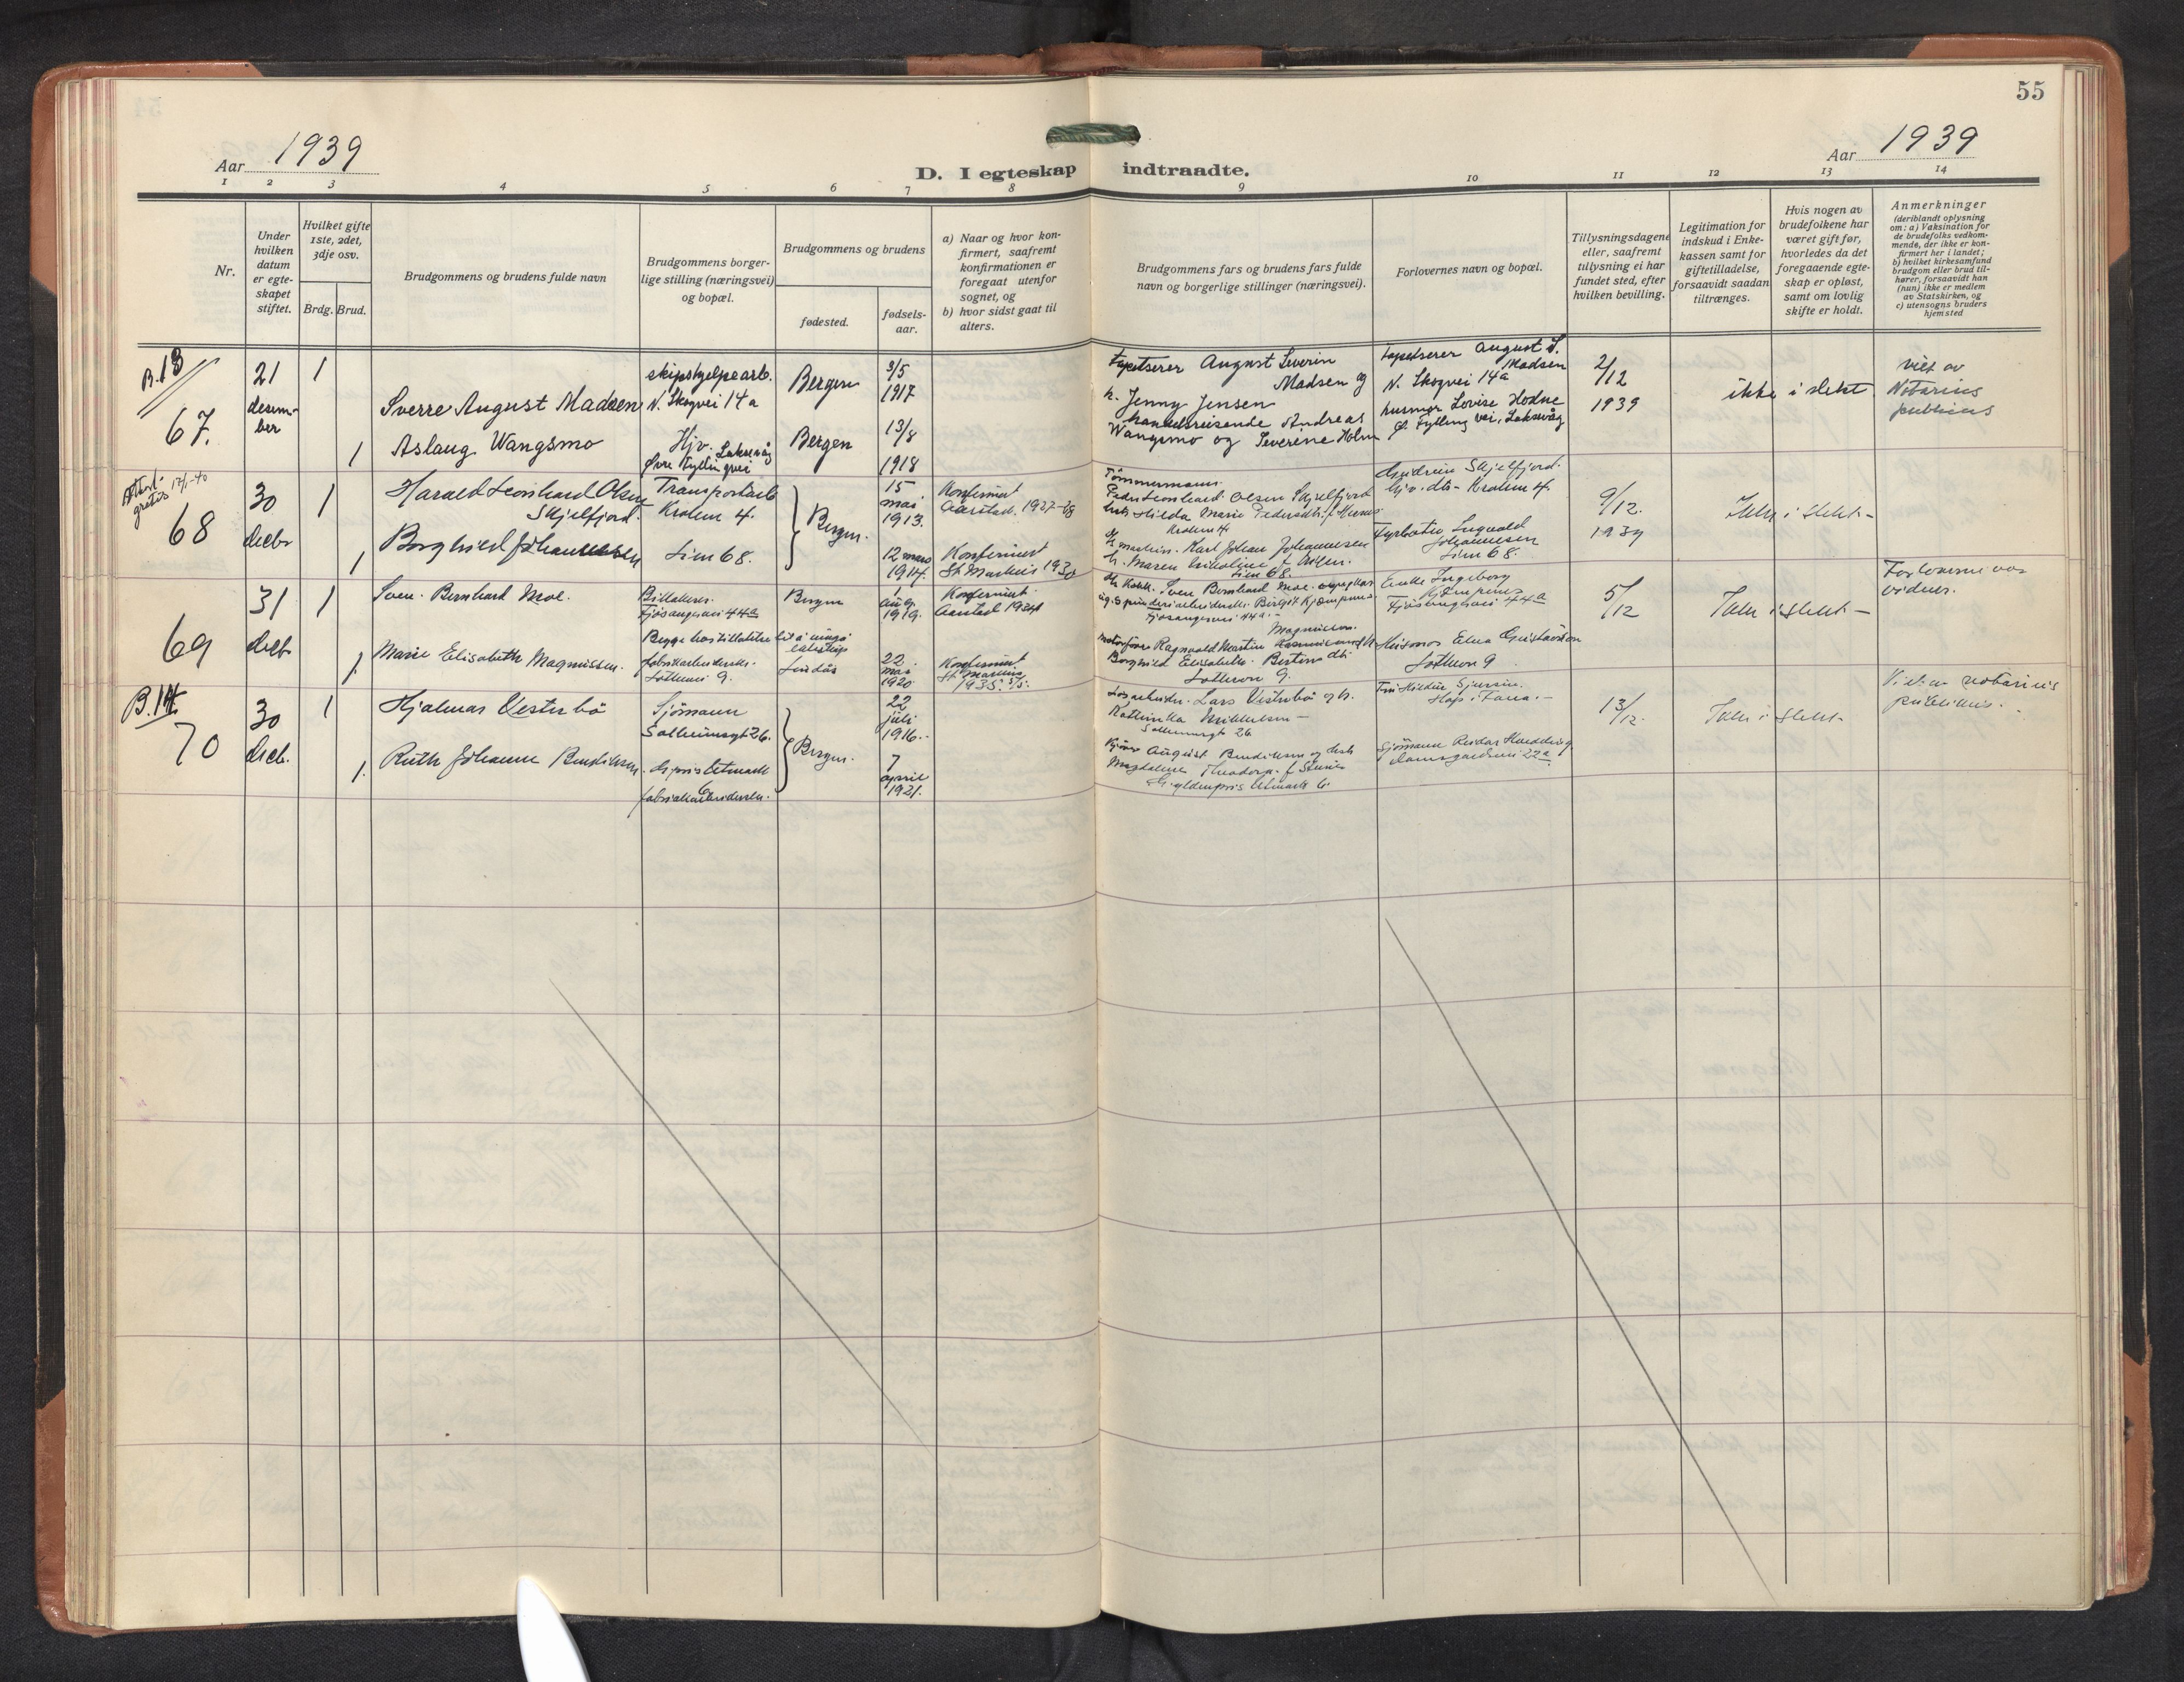 55
Aar 1939
Aar 1939
D. I egteskap indtraadte.
1 2 3 4 5 6 7 8 9 10 11 12 13 14
Nr.
Under hvilken datum er egte-skapet stiftet.
Hvilket gifte 1ste, 2det, 3dje osv.
Brdg. Brud.
Brudgommens og brudens fulde navn
Brudgommens borger-lige stilling (næringsvei) og bopæl.
Brudgommens og brudens
fødested.
fødsels-aar.
a) Naar og hvor kon-firmert, saafremt konfirmationen er foregaat utenfor sognet, og
b) hvor sidst gaat til alters.
Brudgommens fars og brudens fars fulde navn og borgerlige stillinger (næringsvei).
Forlovernes navn og bopæl.
Tillysningsdagene eller, saafremt tillysning ei har fundet sted, efter hvilken bevilling.
Legitimation for indskud i Enke-kassen samt for giftetilladelse, forsaavidt saadan tiltrænges.
Hvis nogen av brudefolkene har været gift før, hvorledes da det foregaaende egte-skap er opløst, samt om lovlig skifte er holdt.
Anmerkninger
(deriblandt oplysning om: a) Vaksination for de brudefolks vedkom-mende, der ikke er kon-firmert her i landet; b) hvilket kirkesamfund brudgom eller brud til-hører, forsaavidt han (hun) ikke er medlem av Statskirken, og c) utensogns bruders hjemsted
B.13
67.
21
desem-
ber
1
Sverre August Madsen
skipshjelpearb.
N. Skogvei 14a
Bergen
3/5
1917
tapetserer August Severin
Madsen og
h. Jenny Jensen
tapetserer August S.
Madsen
N. Skogvei 14a
2/12
1939
ikke i slekt
viet av
Notarius
publicus
1
Aslaug Wangsmo
Hjv. Laksevåg
Øvre Fyllingsvei
Bergen
13/8
1918
handelsreisende Andreas
Wangsmo og Severine Holm
husmor Lovise Hodne
Ø. Fylling vei, Laksevåg
Attest
gratis 17/1-40
68
30
decbr
1
Harald Leonhard Olsen
Skjelfjord.
Transportarb
Kroken 4.
Bergen.
15
mai
1913.
Konfirmert
Aarstad. 1927-28
Tømmermann
Peder Leonhard Olsen Skjelfjord
Hilda Marie
Kroken 4
Gudrun Skjelfjord.
Kroken 4.
9/12.
1939
Ikke i slekt -
1
Borghild Johannessen
Lien 68.
12 mars
1914.
Konfirmert
St. Markus 1930
Karl Johan Johannessen
Lien 68.
Fyrbøter Ingvald
Johannessen
Lien 68.
69
31
decb.
1
Sven Bernhard Moe.
Fjøsangerveien 44a
Bergen
1
Aug.
1919.
Konfirmert
Aarstad 1934
Sven Bernhard Moe
Birgit Kjempenes
Fjøsangerveien 44a
Enke Ingeborg
Kjempenes
Fjøsangervei 44a
5/12
Ikke i slekt -
Forloverne var
vidner.
Begge har tillatelse til å inngå
ekteskap
1.
Marie Elisabeth Magnussen.
fabrikarbeiderske.
Lotheveien 9.
Lindås
22
mai
1920
Konfirmert
St. Markus
1935. 5/5.
Magnussen.
Ragnvald Martin
Borghild Elisabeth
Husmor Elna Gustavson
B.14.
70
30
decb.
1
Hjalmar Vesterbø
Sjømann
Solheimsgt 26.
Bergen.
22
juli
1916.
Løsarbeider. Lars Vesterbø og h.
Kathinka Mikkelsen -
Solheimsgt 26
Hop i Fana. -
13/12.
Ikke i slekt.
Viet av notarius
publicus.
1.
Ruth Johanne Bendiksen.
Gyldenpris Utmark
6
fabrikarbeiderske.
7
april
1921.
August Bendiksen
Magdalene Theodora
Gyldenpris Utmark 6.
Sjømann Reidar
Damsgaardsvei 22a